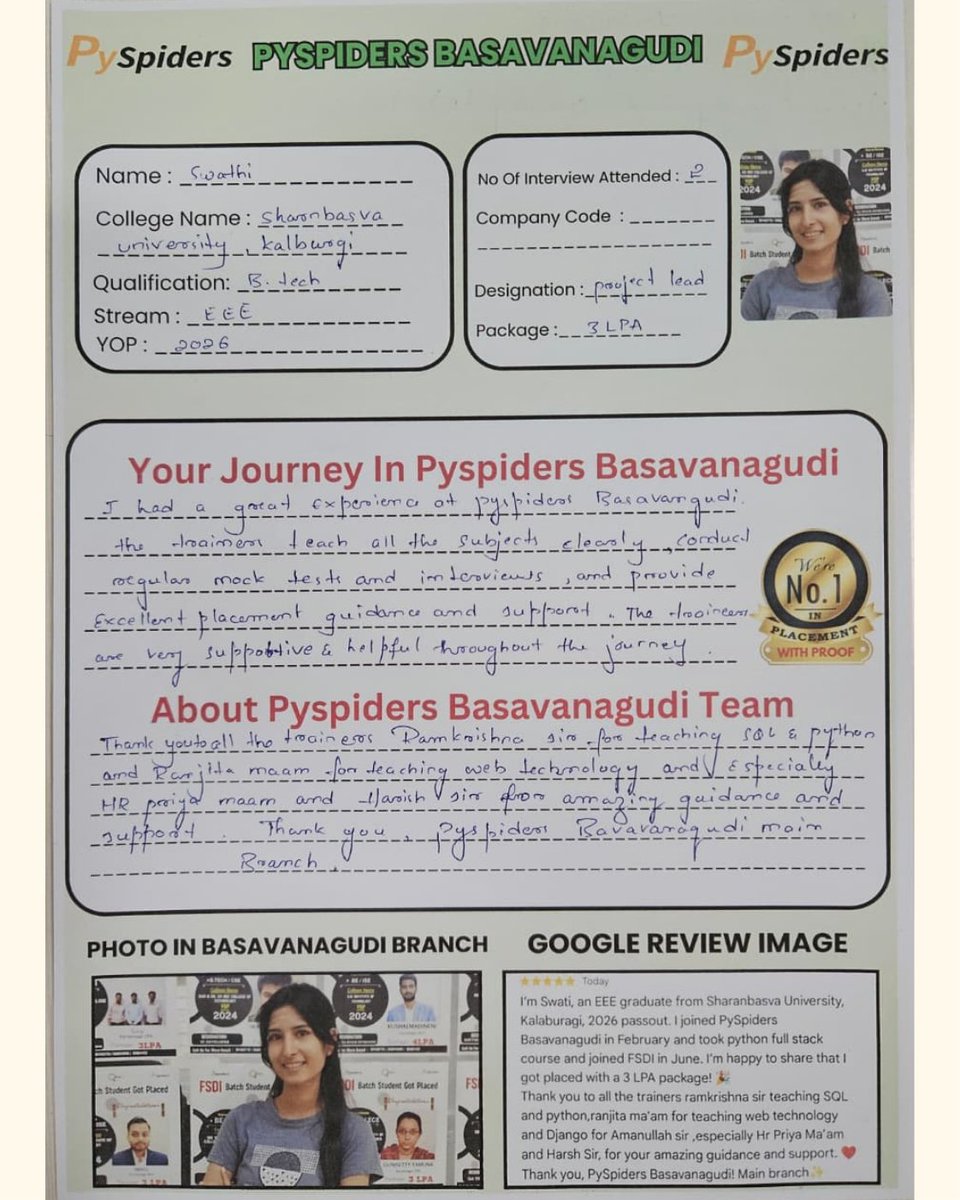 PySpiders PYSPIDERS BASAVANAGUDI PySpiders
Name : Swathi
College Name : Sharnbasva
university , kalburgi
Qualification: B.tech
Stream : EEE
YOP : 2026
No Of Interview Attended : 2
Company Code :
Designation : project lead
Package : 3 LPA
2024
2024
Batch Student
Batch
Your Journey In Pyspiders Basavanagudi
I had a great Experience at pyspiders Basavangudi.
the trainers teach all the subjects clearly , conduct
regular mock tests and interviews , and provide
Excellent placement guidance and support . The trainers
are very supportive & helpful throughout the journey .
We're
No.1
IN
PLACEMENT
WITH PROOF
About Pyspiders Basavanagudi Team
Thank you to all the trainers Ramkrishna sir for teaching SQL & python
and Ranjita maam for teaching web technology and Especialy
HR priya maam and Harish sir for amazing guidance and
support . Thank you , pyspiders Bavavanagudi main
Branch .
PHOTO IN BASAVANAGUDI BRANCH
2024
2024
3LPA
4LPA
Student Got Placed
FSDI Batch Student
Batch Student Got Placed
3 LPA
GOOGLE REVIEW IMAGE
Today
I'm Swati, an EEE graduate from Sharanbasva University,
Kalaburagi, 2026 passout. I joined PySpiders
Basavanagudi in February and took python full stack
course and joined FSDI in June. I'm happy to share that I
got placed with a 3 LPA package! 🎉
Thank you to all the trainers ramkrishna sir teaching SQL
and python,ranjita ma'am for teaching web technology
and Django for Amanullah sir ,especially Hr Priya Ma'am
and Harsh Sir, for your amazing guidance and support. ❤️
Thank you, PySpiders Basavanagudi! Main branch✨